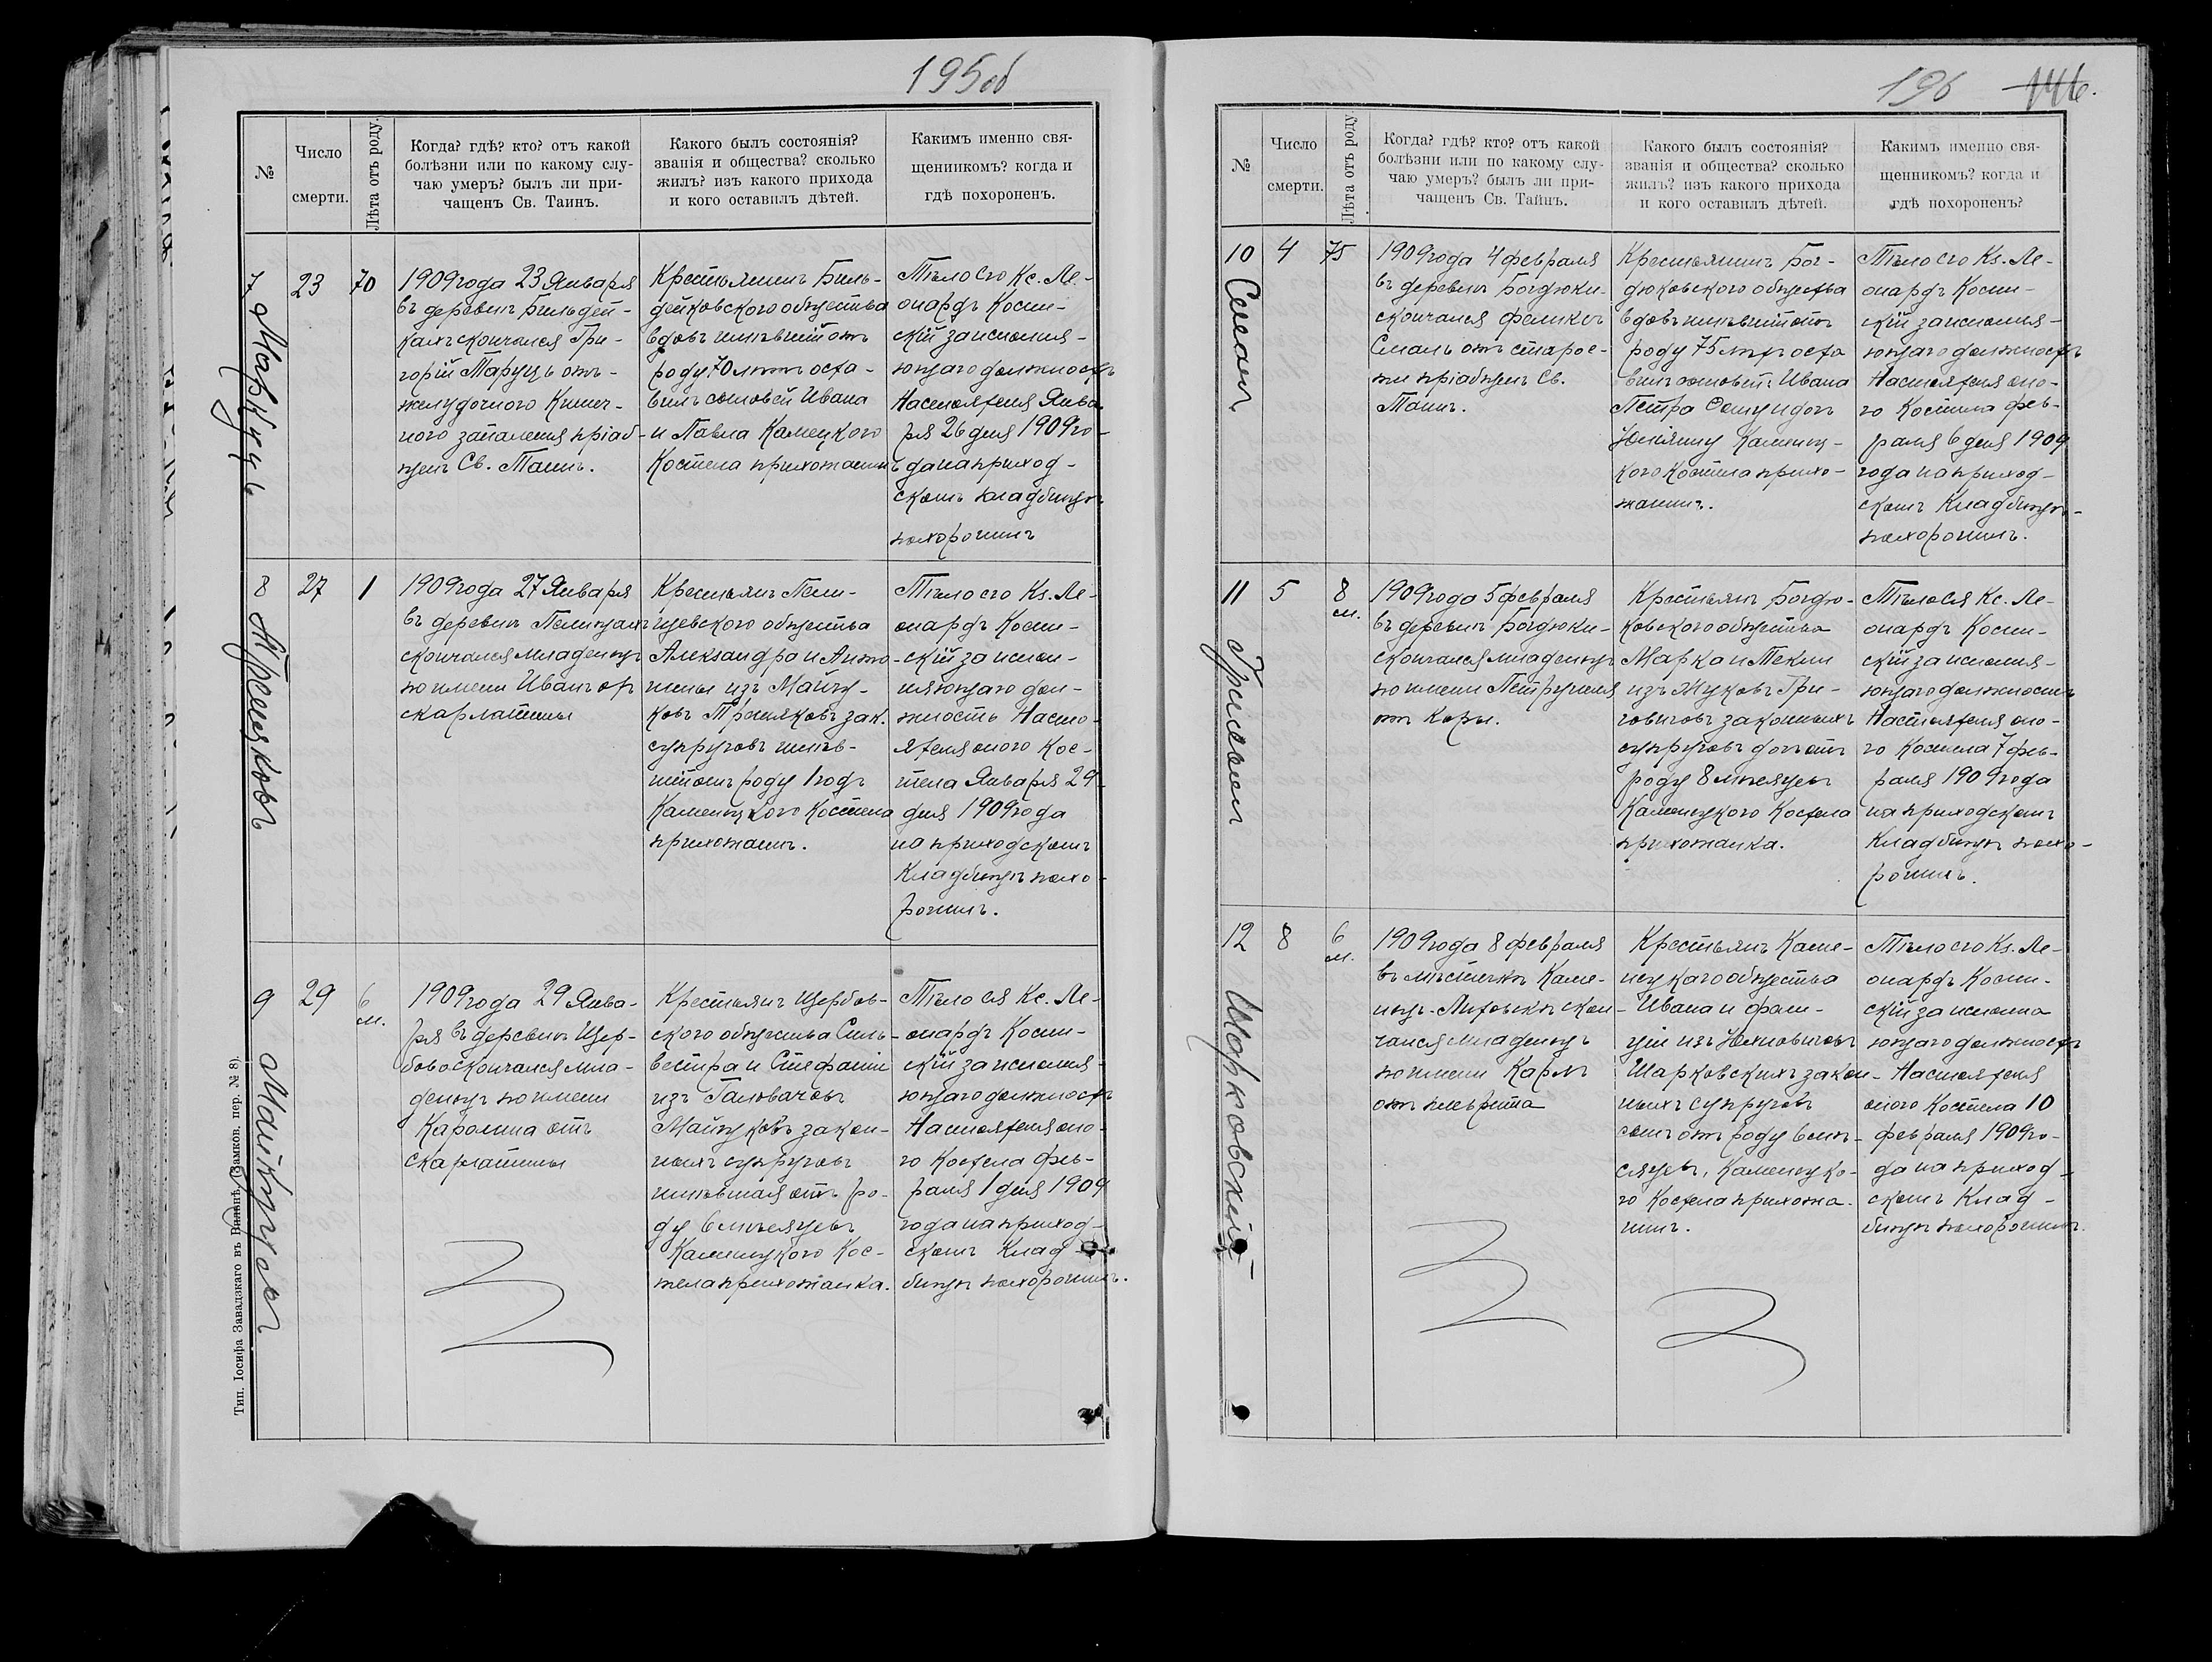 195об
№
Число
смерти.
Лѣта отъ роду.
Когда? гдѣ? кто? отъ какой
болѣзни или по какому слу-
чаю умеръ? былъ ли при-
чащенъ Св. Таинъ.
Какого былъ состоянія?
званія и общества? сколько
жилъ? изъ какого прихода
и кого оставилъ дѣтей.
Какимъ именно свя-
щенникомъ? когда и
гдѣ похороненъ.
7
23
70
1909 года 23 Января
въ деревнѣ Бильдей-
кахъ скончался Гри-
горій
желудочного Кишеч-
ного запаленія пріоб-
щенъ Св. Таинъ.
Крестьянинъ Биль-
дейковского общества
вдовъ имѣвшій отъ
роду 70 лѣтъ оста-
вилъ сыновей Ивана
и Павла
Костела прихожанинъ
Тѣло его Кс. Ле-
онардъ
скій за исполня-
ющаго должность
Настоятеля Янва-
ря 26 дня 1909 го-
да на приход-
скомъ кладбищѣ
похоронилъ
8
Треняковъ
27
1
1909 года 27 Января
въ деревнѣ Пелищахъ
скончался младенецъ
по имени Иванъ отъ
скарлатины
Крестьянъ Пели-
щевского общества
Александра и Анто-
нины изъ Майщу-
ковъ Треняковъ зак.
супруговъ имѣв-
шій отъ роду 1 годъ
Каменецкого Костела
прихожанинъ.
Тѣло его Кs. Ле-
онардъ
скій за испол-
няющаго дол-
жность Насто-
ятеля оного Кос-
тела Января 29
дня 1909 года
на приходскомъ
Кладбищѣ похо-
ронилъ.
9
29
6
м.
1909 года 29 Янва-
ря въ деревнѣ Щер-
бово скончался мла-
денецъ по имени
Каролина отъ
скарлатины
Крестьянъ Щербов-
ского общества Силь-
вестра и Стефаніи
изъ Галовачовъ
закони-
ныхъ супруговъ
имѣвшая отъ ро-
ду 6 мѣсяцевъ
Каменецкого Кос-
тела прихожанка.
Тѣло ея Кс. Ле-
онардъ
скій за исполня-
ющаго должность
Настоятеля оно-
го Костела Фев-
раля 1 дня 1909
года на приход-
скомъ Клад-
бищѣ похоронилъ.
Тип. Іосифа Завадзкаго въ Вильнѣ, (Замков. пер. № 8).
196
146.
№
Число
смерти.
Лѣта отъ роду
Когда? гдѣ? кто? отъ какой
болѣзни или по какому слу-
чаю умеръ? былъ ли при-
чащенъ Св. Таинъ.
Какого былъ состоянія?
званія и общества? сколько
жилъ? изъ какого прихода
и кого оставилъ дѣтей.
Какимъ именно свя-
щенникомъ? когда и
гдѣ похороненъ?
10
4
75
1909 года 4 февраля
въ деревнѣ Богдюки-
скончался Феликсъ
отъ старос-
ти пріобщенъ Св.
Таинъ.
Крестьянинъ Бог-
дюковского общества
вдовъ имѣвшій отъ
роду 75 лѣтъ оста-
вилъ сыновей: Ивана
Петра
Каменец-
кого Костела прихо-
жанинъ.
Тѣло его Кs. Ле-
онардъ
скій за исполня-
ющаго должность
Настоятеля оно-
го Костела фев-
раля 6 дня 1909
года на приход-
скомъ Кладбищѣ-
похоронилъ.
11
5
8
м.
1909 года 5 февраля
въ деревнѣ Богдюки-
скончался младенецъ
по имени Петрунеля
отъ Коры.
Крестьянъ Богдю-
ковского общества
Марка и Теклии
изъ Жуковъ Гри-
законныхъ
супруговъ дочь отъ
роду 8 мѣсяцевъ
Каменецкого Костела
прихожанка.
Тѣло ея Кс. Ле-
онардъ
скій за исполня-
ющаго должность
Настоятеля оно-
го Костела 7 фев-
раля 1909 года
на приходскомъ
Кладбищѣ похо-
ронилъ.
12
Шарковскій
8
6
м.
1909 года 8 февраля
въ мѣстечкѣ Каме-
нецъ-Литовскъ скон-
чался младенецъ
по имени Карлъ
отъ плеврита
Крестьянъ Каме-
нецкаго общества
Ивана и Фели-
ціи изъ Юхновичовъ
Шарковскихъ закон-
ныхъ супруговъ
сынъ отъ роду 6 мѣ-
сяцевъ, Каменецко-
го Костела прихожа-
нинъ.
Тѣло его Кs. Ле-
онардъ
скій за исполня
ющаго должность
Настоятеля
оного Костела 10
февраля 1909 го-
да на приход-
скомъ Клад-
бищѣ похоронилъ.